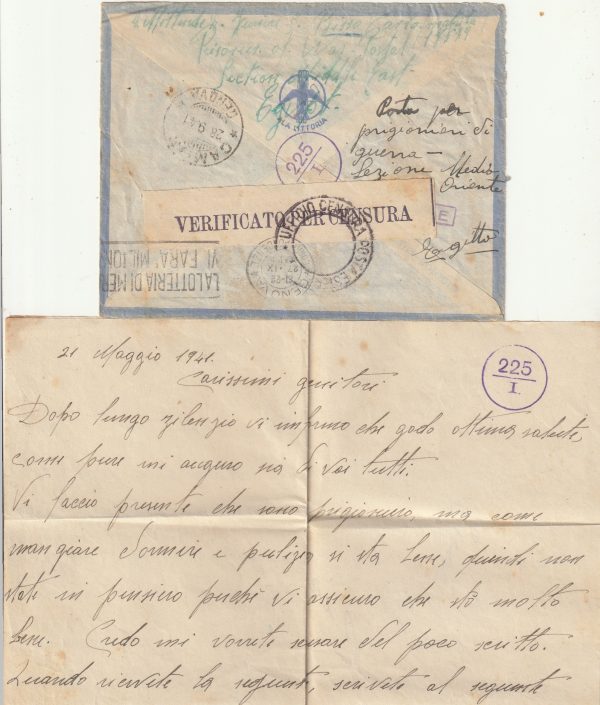 Prisoner of War Postal
Section Middle East
Egypt
ALA LITTORIA
225
I.
Posta per
prigionieri di
guerra -
Sezione Medio
Oriente
Egitto
E
VERIFICATO PER CENSURA
UFFICIO CENSURA POSTA ESTERA
GENOVA
28.9.41
LA LOTTERIA DI MER
VI FARA' MILION
21 Maggio 1941.
225
I.
Carissimi genitori
Dopo lungo silenzio vi informo che godo ottima salute,
come pure mi auguro sia di voi tutti.
Vi faccio presente che sono prigioniero, ma come
mangiare dormire e pulizia si sta bene, quindi non
state in pensiero perché vi assicuro che stò molto
bene. Credo mi vorrete scusare del poco scritto.
Quando ricevete la seguente, scrivete al seguente